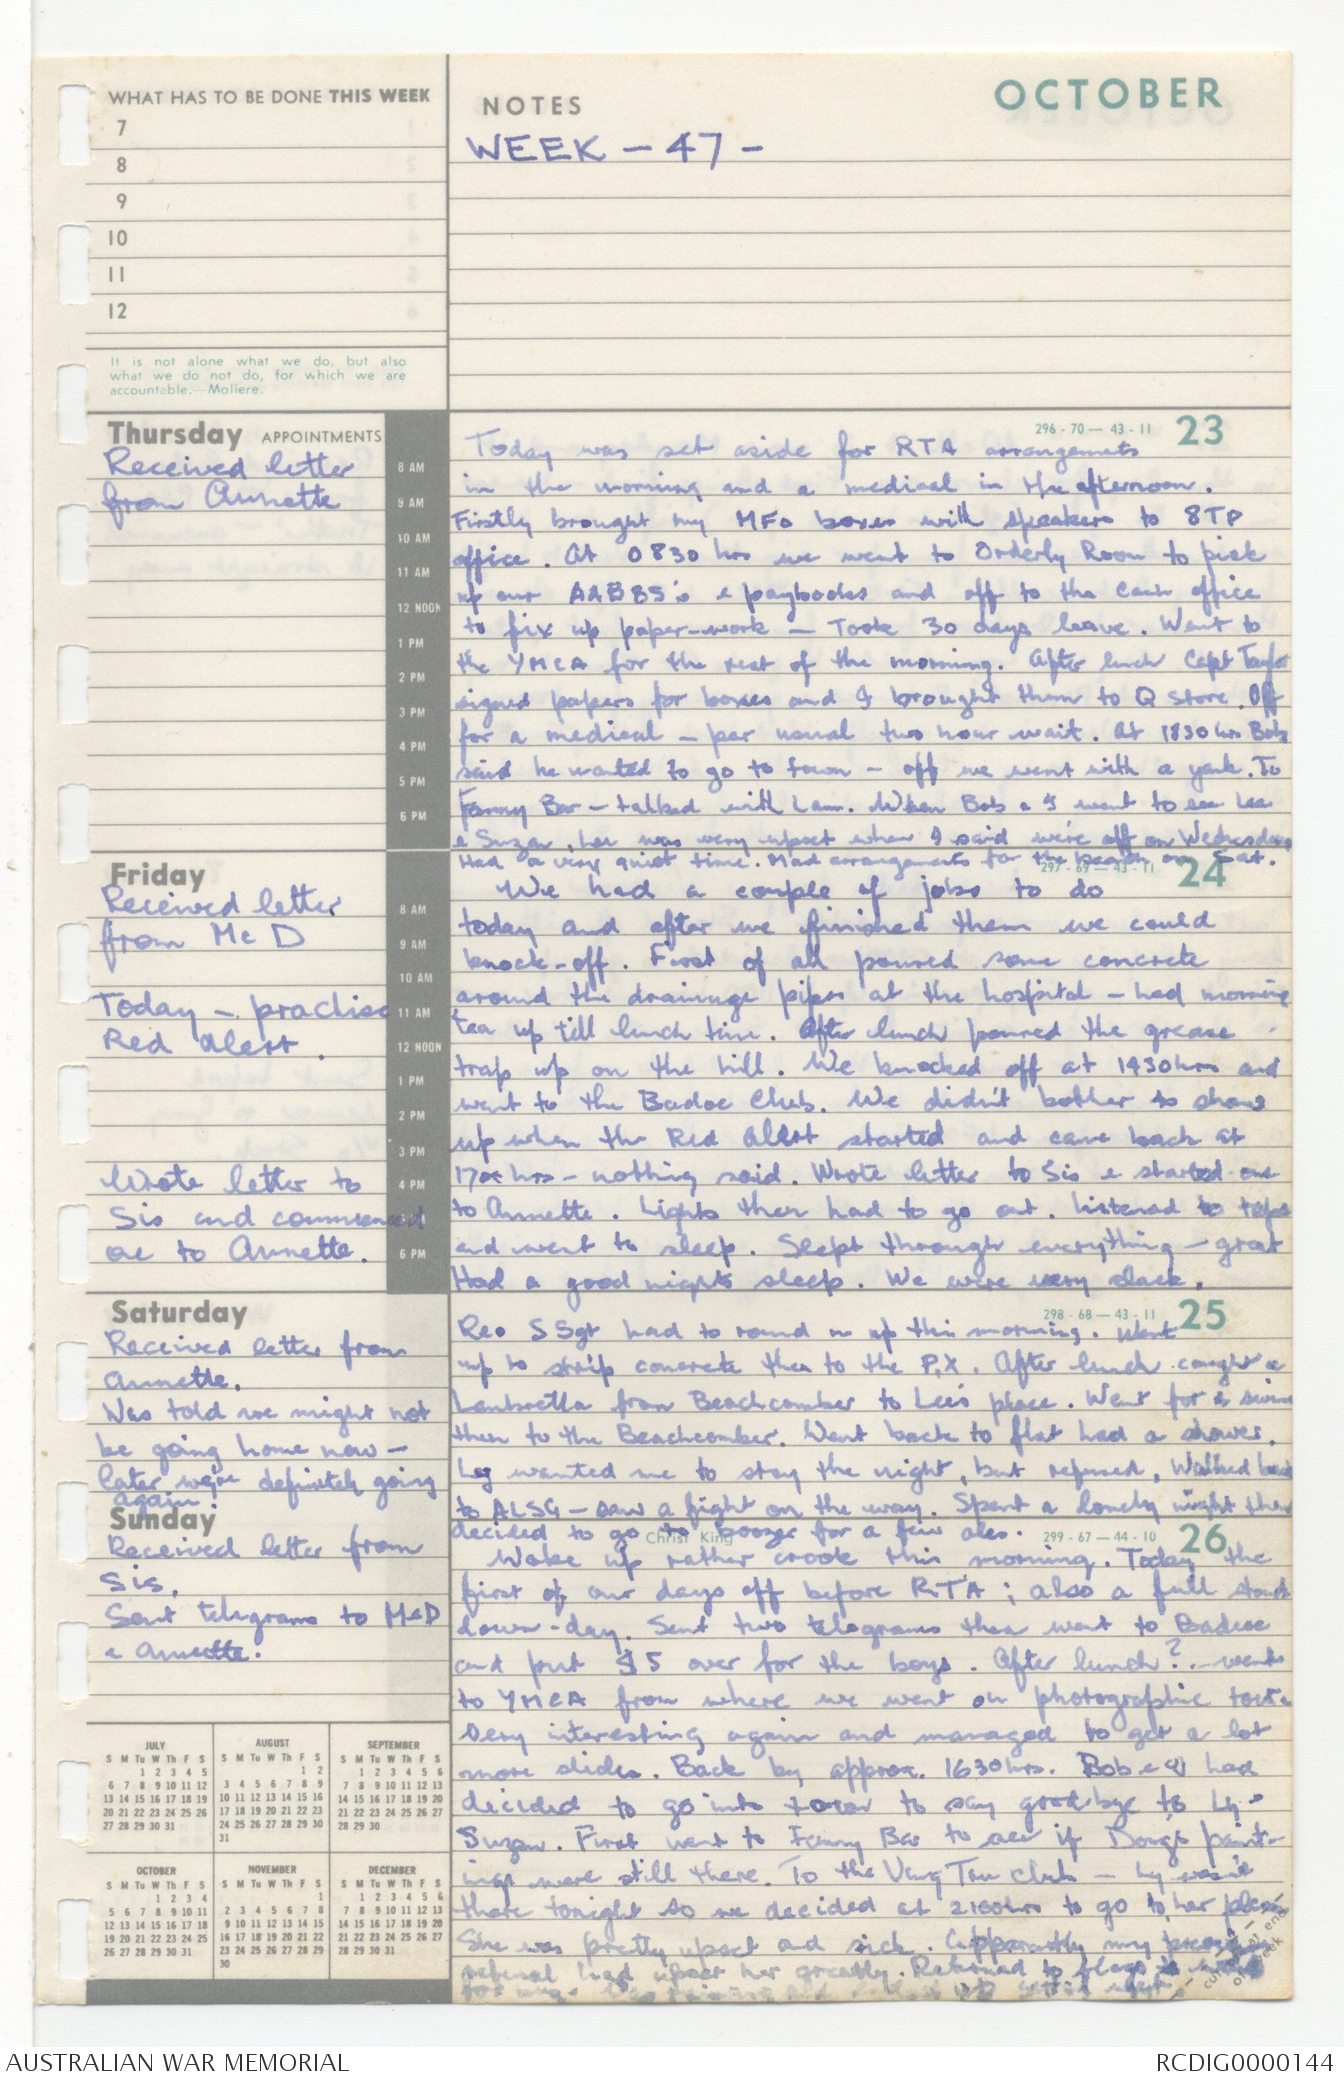 WHAT HAS TO BE DONE THIS WEEK
7
8
9
10
11
12
It is not alone what we do, but also
what we do not do, for which we are
accountable.—Moliere.
NOTES
OCTOBER
WEEK - 47 -
Thursday APPOINTMENTS
Received letter
from Annette
8 AM
9 AM
10 AM
11 AM
12 NOON
1 PM
2 PM
3 PM
4 PM
5 PM
6 PM
296 - 70 — 43 - 11 23
Today was set aside for RTA arrangements
in the morning and a medical in the afternoon.
Firstly brought my MFO boxes with speakers to 8TP
office. At 0830 hrs we went to Orderly Room to pick
up our AAB85's & paybooks and off to the Cash office
to fix up paper-work - Took 30 days leave. Went to
the YMCA for the rest of the morning. After lunch Capt Taylor
signed papers for boxes and I brought them to Q Store. Off
for a medical - per usual two hour wait. At 1830 hrs Bob
said he wanted to go to town - off we went with a yank. To
Fanny Bar - talked with Lam. When Bob & I went to see
& Suzan, her was very upset when I said we're off on Wednesday
Had a very quiet time. Mad arrangements for the beach on Sat.
Friday
Received letter
from Mc D
Today - practise
Red Alert.
Wrote letter to
Sis and commenced
one to Annette.
8 AM
9 AM
10 AM
11 AM
12 NOON
1 PM
2 PM
3 PM
4 PM
6 PM
297 - 69 — 43 - 11 24
We had a couple of jobs to do
today and after we finished them we could
knock-off. First of all poured some concrete
around the drainage pipes at the hospital - had morning
tea up till lunch time. After lunch poured the grease
trap up on the hill. We knocked off at 1430hrs and
went to the Badcoe Club. We didn't bother to show
up when the Red Alert started and came back at
1700 hrs - nothing said. Wrote letter to Sis & started one
to Annette. Lights then had to go out. Listened to tape
and went to sleep. Slept through everything - great
Had a good nights sleep. We were very slack.
Saturday
Received letter from
Annette.
Was told we might not
be going home now -
later we're definitely going
again
298 - 68 — 43 - 11 25
Reo SSgt had to round us up this morning. Went
up to strip concrete then to the P.X. After lunch caught a
Lambretta from Beachcomber to Lee's place. Went for a swim
then to the Beachcomber. Went back to flat had a shower.
Ly wanted me to stay the night, but refused, Walked back
to ALSG - saw a fight on the way. Spent a lonely night then
decided to go to boozer for a few ales.
Sunday
Received letter from
Sis.
Sent telegrams to McD
& Annette.
Christ King
299 - 67 — 44 - 10 26
Woke up rather crook this morning. Today the
first of our days off before RTA; also a full stand
down-day. Sent two telegrams then went to Badcoe
and put $5 over for the boys. After lunch?.. went
to YMCA from where we went on photographic tour.
Very interesting again and managed to get a lot
more slides. Back by approx. 1630hrs. Bob & I had
decided to go into town to say goodbye to Ly &
Suzan. First went to Fanny Bar to see if Doug's paint-
ings were still there. To the Vung Tau club - Ly wasn't
there tonight so we decided at 2100hrs to go to her place.
She was pretty upset and sick. Apparently my
refusal had upset her greatly. Returned to
JULY
S M Tu W Th F S
1 2 3 4 5
6 7 8 9 10 11 12
13 14 15 16 17 18 19
20 21 22 23 24 25 26
27 28 29 30 31
AUGUST
S M Tu W Th F S
1 2
3 4 5 6 7 8 9
10 11 12 13 14 15 16
17 18 19 20 21 22 23
24 25 26 27 28 29 30
31
SEPTEMBER
S M Tu W Th F S
1 2 3 4 5 6
7 8 9 10 11 12 13
14 15 16 17 18 19 20
21 22 23 24 25 26 27
28 29 30
OCTOBER
S M Tu W Th F S
1 2 3 4
5 6 7 8 9 10 11
12 13 14 15 16 17 18
19 20 21 22 23 24 25
26 27 28 29 30 31
NOVEMBER
S M Tu W Th F S
1
2 3 4 5 6 7 8
9 10 11 12 13 14 15
16 17 18 19 20 21 22
23 24 25 26 27 28 29
30
DECEMBER
S M Tu W Th F S
1 2 3 4 5 6
7 8 9 10 11 12 13
14 15 16 17 18 19 20
21 22 23 24 25 26 27
28 29 30 31
AUSTRALIAN WAR MEMORIAL
RCDIG0000144